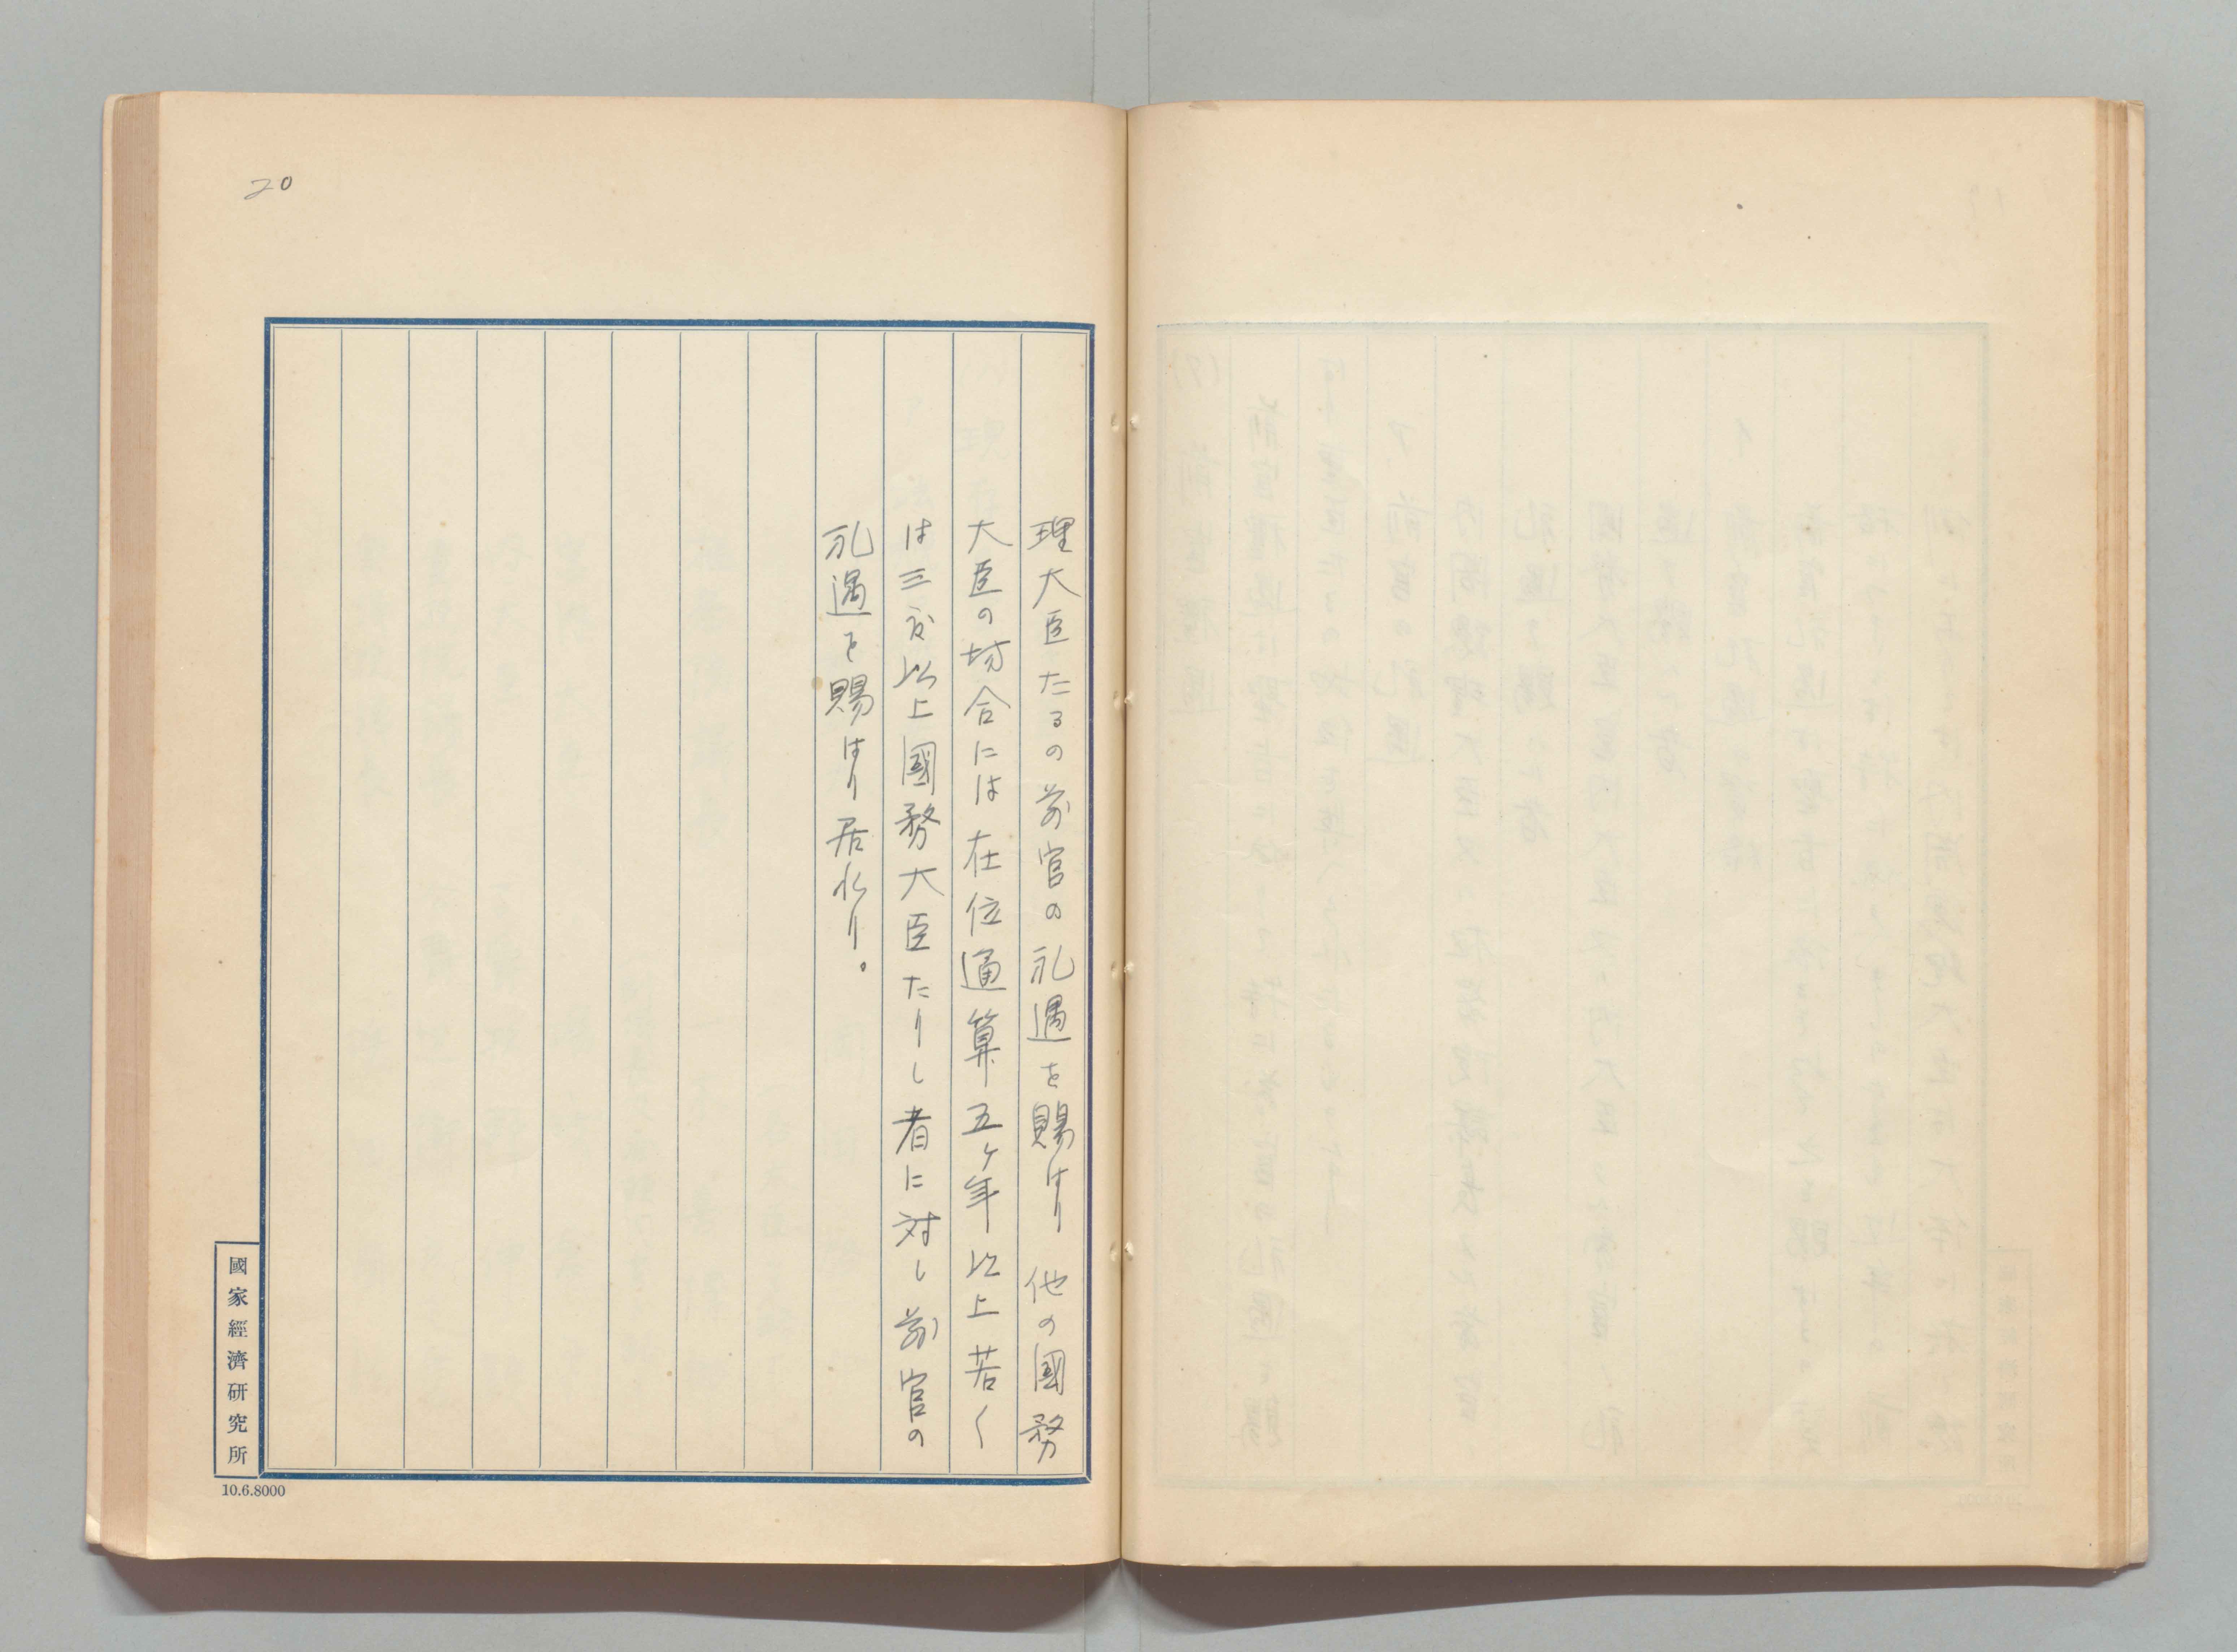 20
理大臣たるの前官の礼遇を賜はり他の國務
大臣の場合には在位通算五ヶ年以上若く
は三度以上國務大臣たりし者に対し前官の
礼遇を賜はり居れり。
國家經濟研究所
10.6.8000